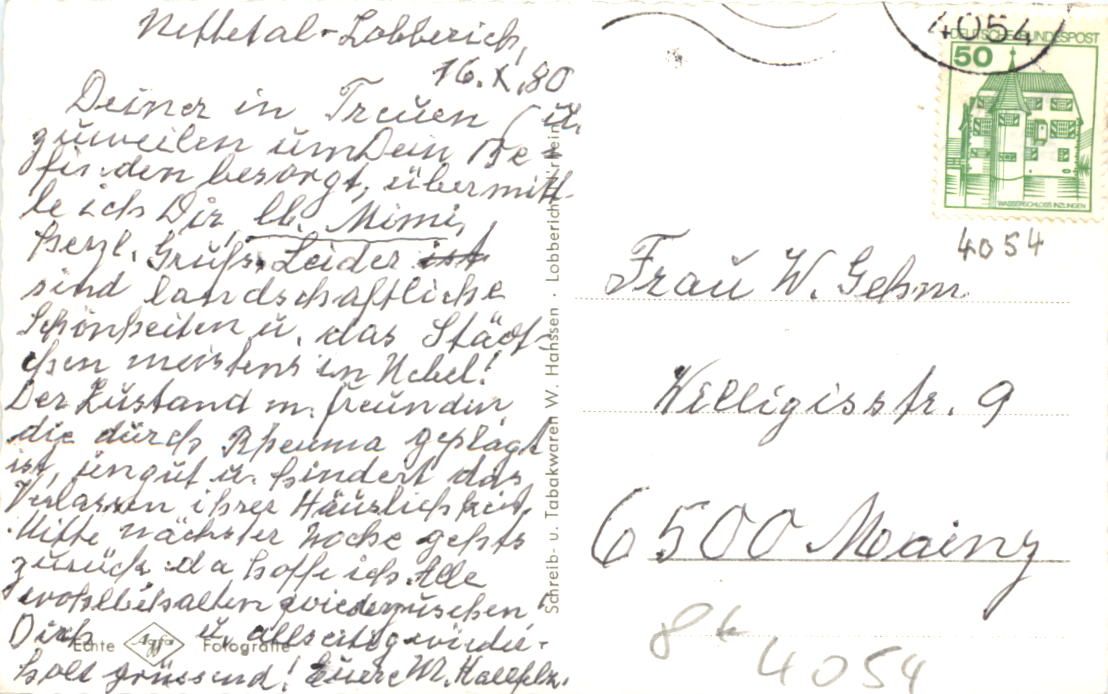 Nettetal-Lobberich,
16.X.80
Deiner in Treuen (u.
zuweilen um Dein Be-
finden besorgt, übermitt-
le ich Dir, lb. Mimi,
herzl. Grüße. Leider ist
sind landschaftliche
Schönheiten u. das Städt-
chen meistens im Nebel!
Der Zustand m. Freundin
die durch Rheuma geplagt
ist, ungut u. hindert das
Verlassen ihrer Häuslichkeit.
Mitte nächster Woche gehts
zurück. da hoffe ich Alle
wohlbehalten wiederzusehen!
Dich u. allseits wieder-
holt grüssend! Eure M.
Echte Agfa Fotografie
Schreib- u. Tabakwaren W. Hanssen · Lobberich
4054
DEUTSCHE BUNDESPOST
50
WASSERSCHLOSS INZLINGEN
4054
Frau W. Gehm
Willigisstr. 9
6500 Mainz
8t
4054